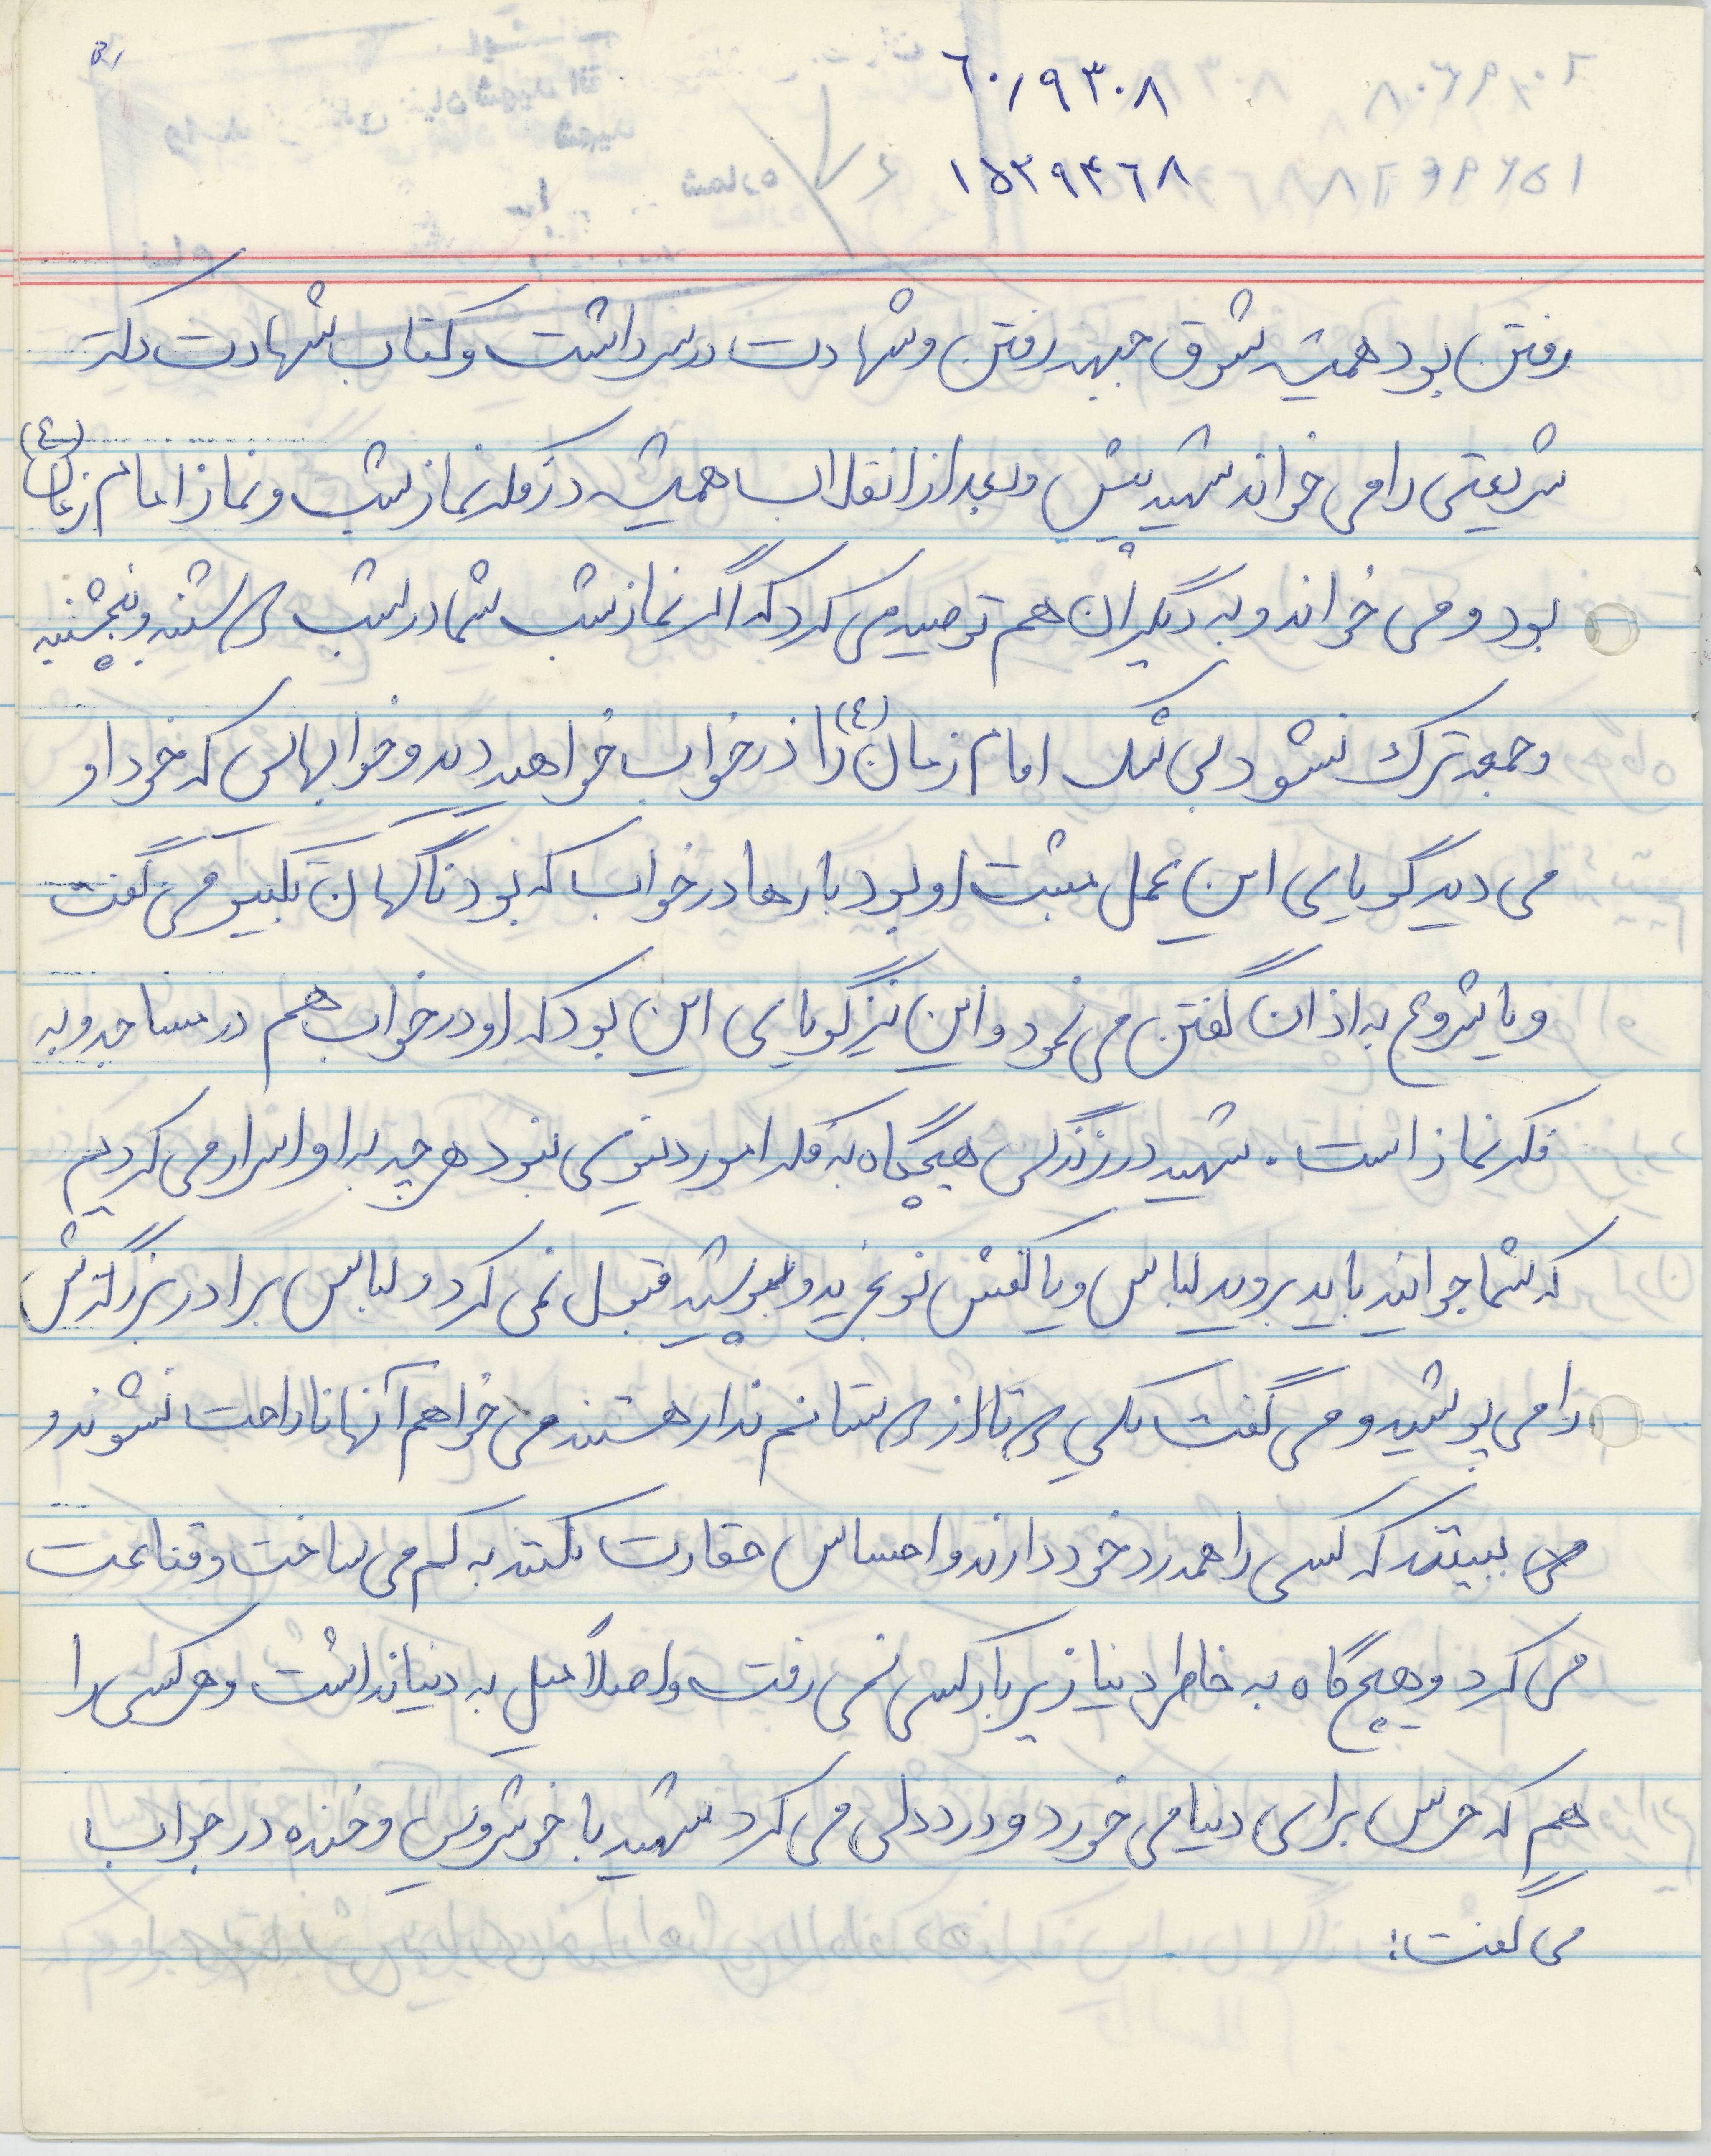 ۶۰/۹۳۰۸
۱۵۲۹۴۶۸
رفتن بود همیشه شوق جبهه رفتن و شهادت در سر داشت و کتاب شهادت دکتر
شریعتی را می خواند شهید پیش و بعد از انقلاب همیشه در فکر نماز شب و نماز امام زمان (ع)
بود و می خواند و به دیگران هم توصیه می کرد که اگر نماز شب شما در شب سه شنبه و پنجشنبه
و جمعه ترک نشود بی شک امام زمان (ع) را در خواب خواهید دید و خوابهائی که خود او
می دید گویای این عمل مثبت او بود بارها در خواب که بود ناگهان تکبیر می گفت
و یا شروع به اذان گفتن می نمود و این نیز گویای این بود که او در خواب هم در مساجد و به
فکر نماز است. شهید در زندگی هیچگاه به فکر امور دنیوی نبود هر چه به او اسرار می کردیم
که شما جوانید باید بروید لباس و یا کفش نو بخرید و بپوشید قبول نمی کرد و لباس برادر بزرگترش
را می پوشید و می گفت یکی دو تا از دوستانم ندار هستند می خواهم آنها ناراحت نشوند و
می بینند که کسی را همدرد خود دارند و احساس حقارت نکنند به کم می ساخت و قناعت
می کرد و هیچ گاه به خاطر دنیا زیر بار کسی نمی رفت و اصلاً میل به دنیا نداشت و هر کسی را
هم که حرس برای دنیا می خورد و درد دلی می کرد شهید با خوشرویی و خنده در جواب
می گفت: